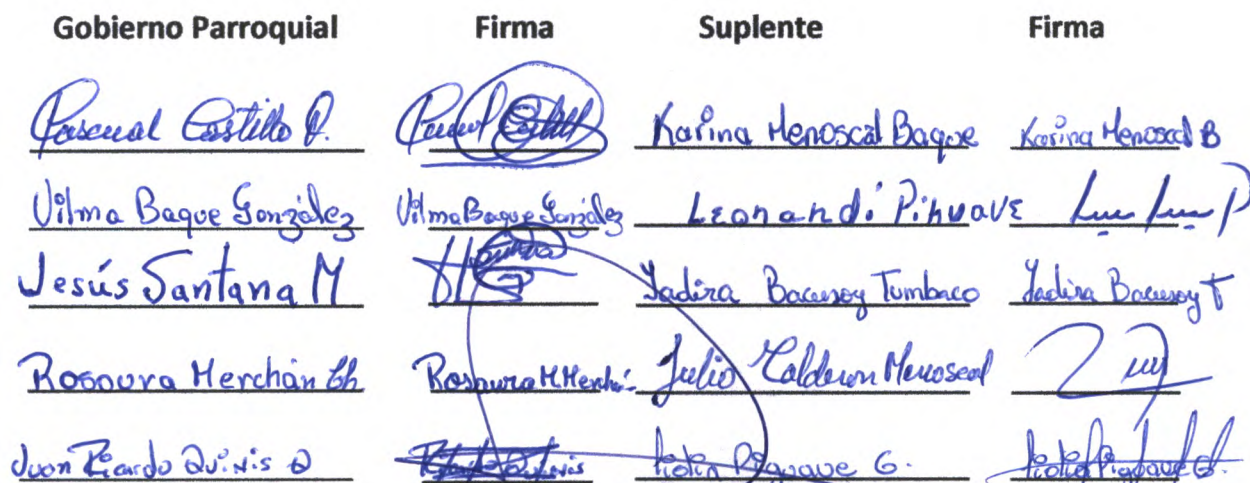 Gobierno Parroquial Firma Suplente Firma
Pascual Castillo P. Karina Menoscal Baque Karina Menoscal B
Vilma Baque González Vilma Baque González Leonandi Pihuave
Jesús Santana M Yadira Bacusoy Tumbaco Yadira Bacusoy T
Rosaura Merchán Ch Rosaura M Merchán Julio Calderon Menoscal
Juan Ricardo Quimis Q G.